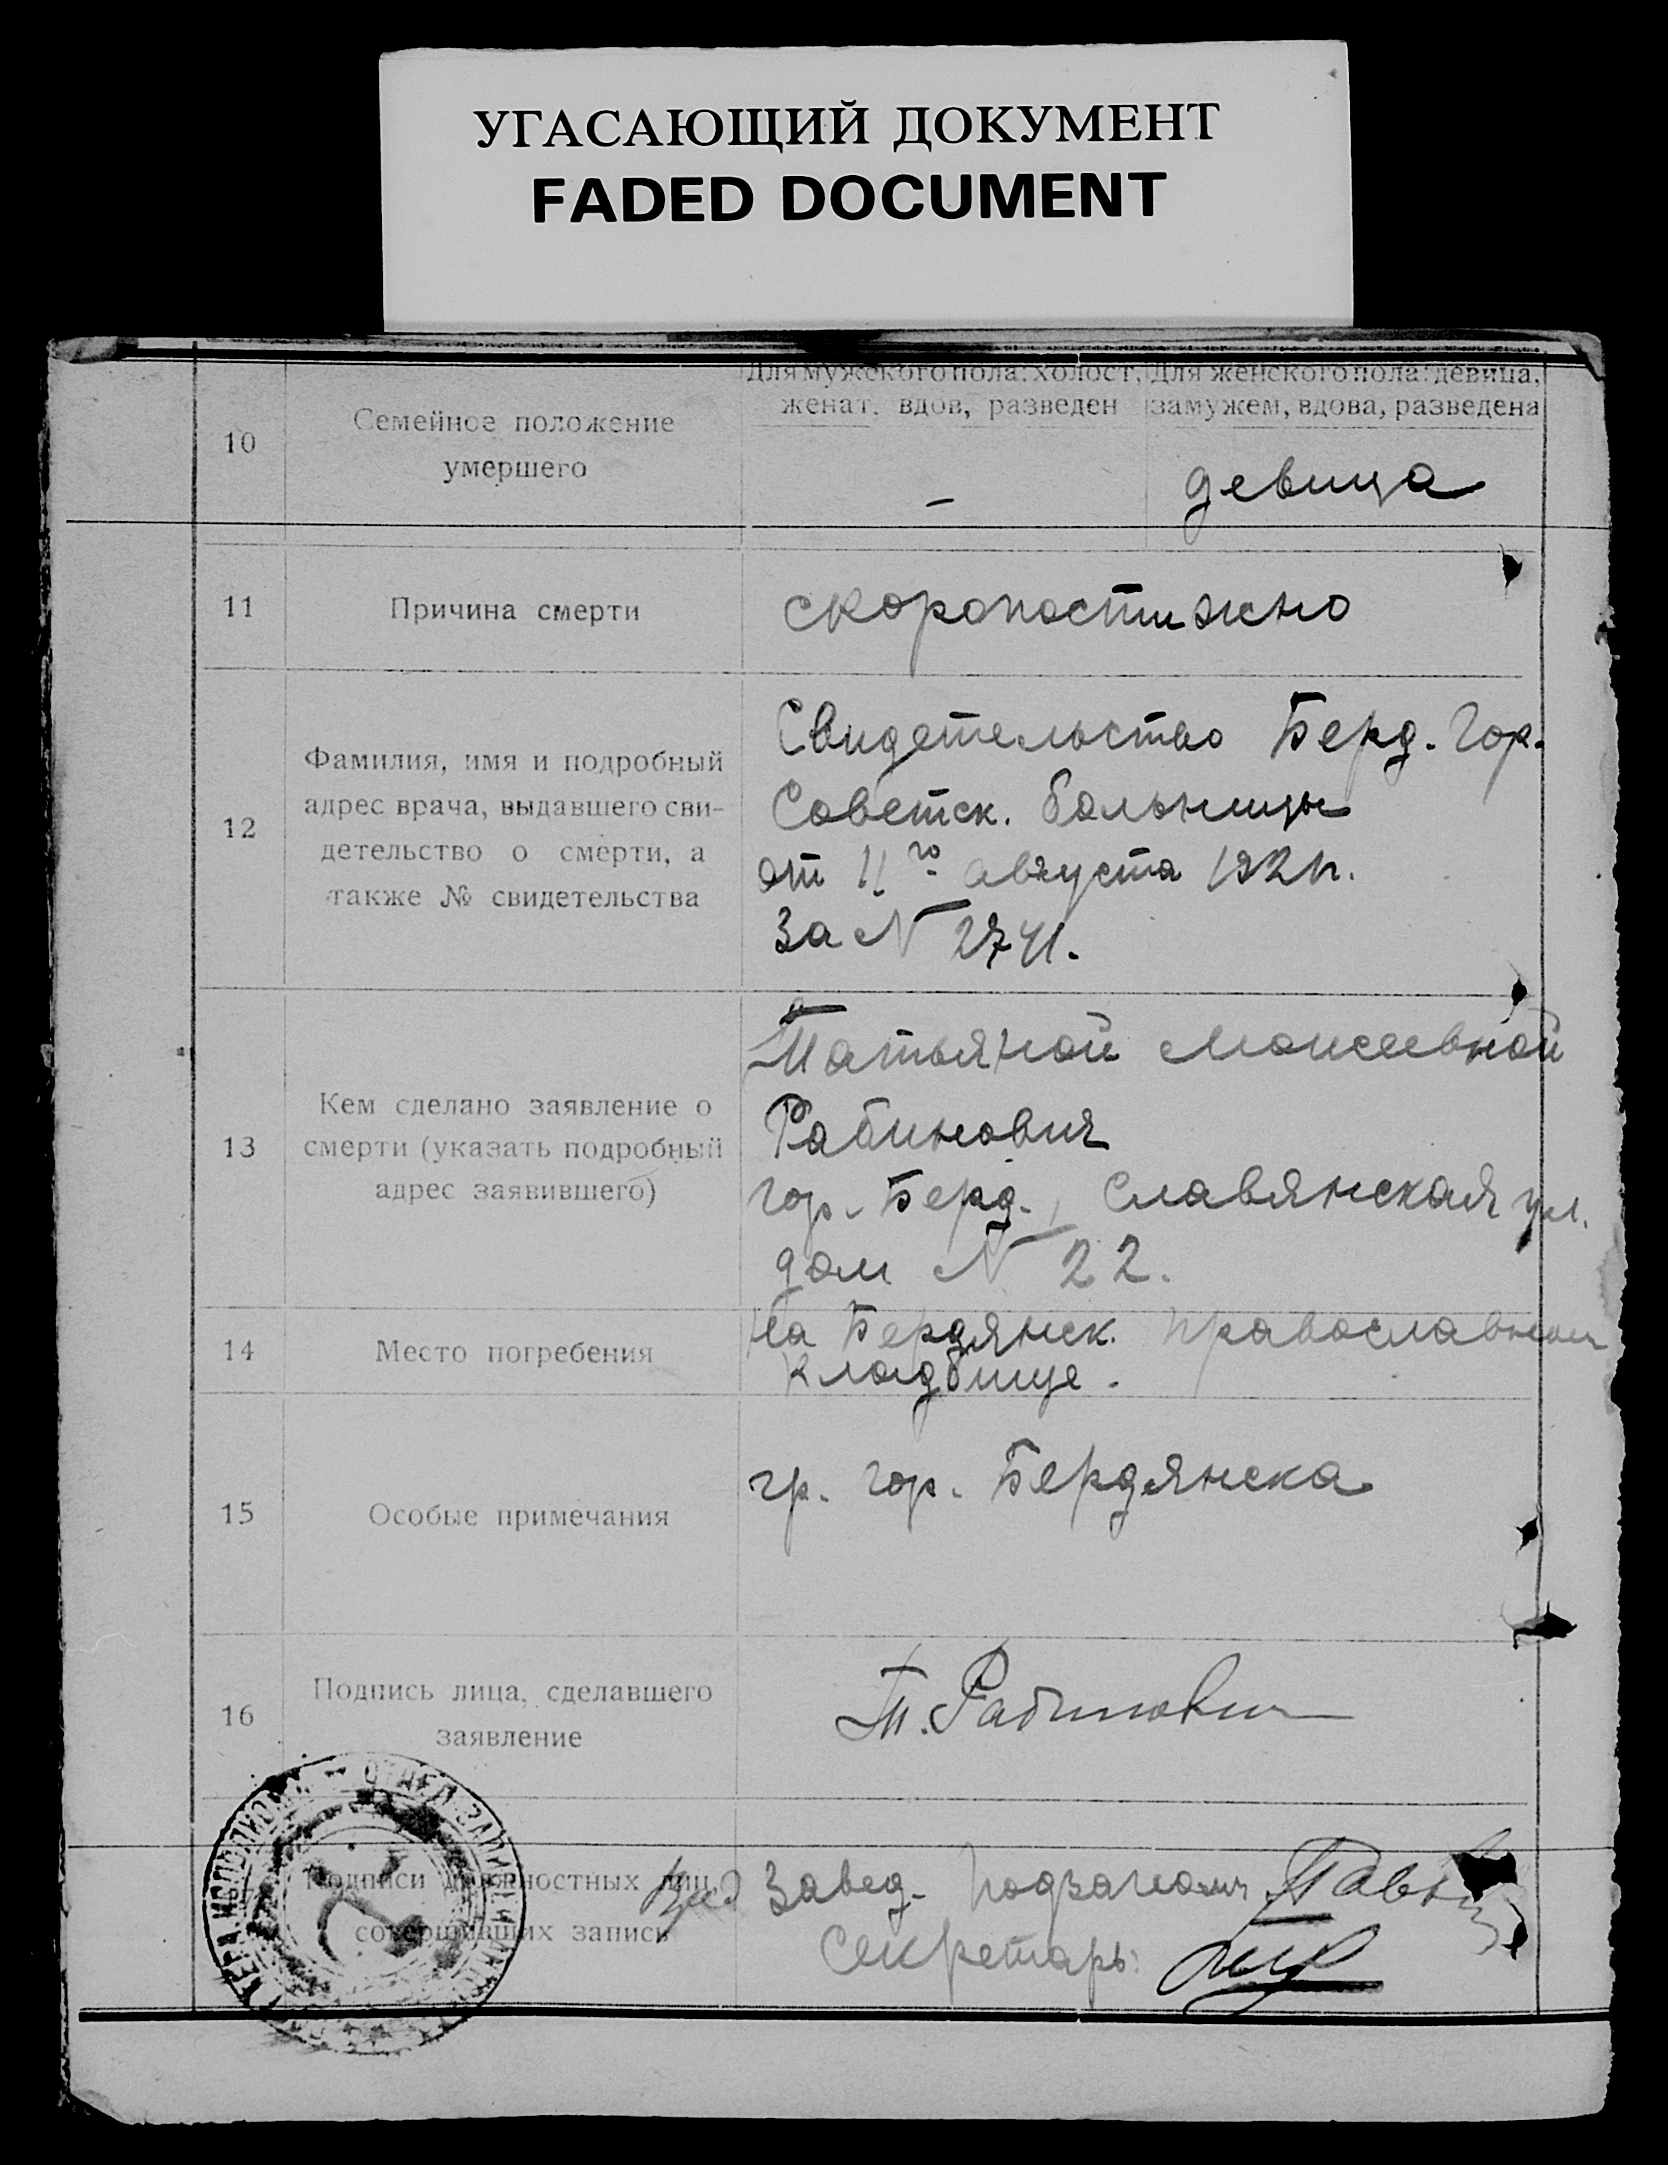 УГАСАЮЩИЙ ДОКУМЕНТ
FADED DOCUMENT
10
Семейное положение
умершего
Для мужского пола: холост,
женат, вдов, разведен
Для женского пола: девица,
замужем, вдова, разведена
–
девица
11
Причина смерти
скоропостижно
12
Фамилия, имя и подробный
адрес врача, выдавшего сви-
детельство о смерти, а
также № свидетельства
Свидетельство Берд. Гор.
Советск. больницы
от 11го августа 192
за № 2741.
13
Кем сделано заявление о
смерти (указать подробный
адрес заявившего)
Татьяной Моисеевной
Рабинович
гор. Берд., Славянская ул.
дом № 22.
14
Место погребения
На Бердянск. православном
кладбище.
15
Особые примечания
гр. гор. Бердянска
16
Подпись лица, сделавшего
заявление
Т. Рабинович
Подписи должностных лиц,
совершивших запись
Завед.
Секретарь: